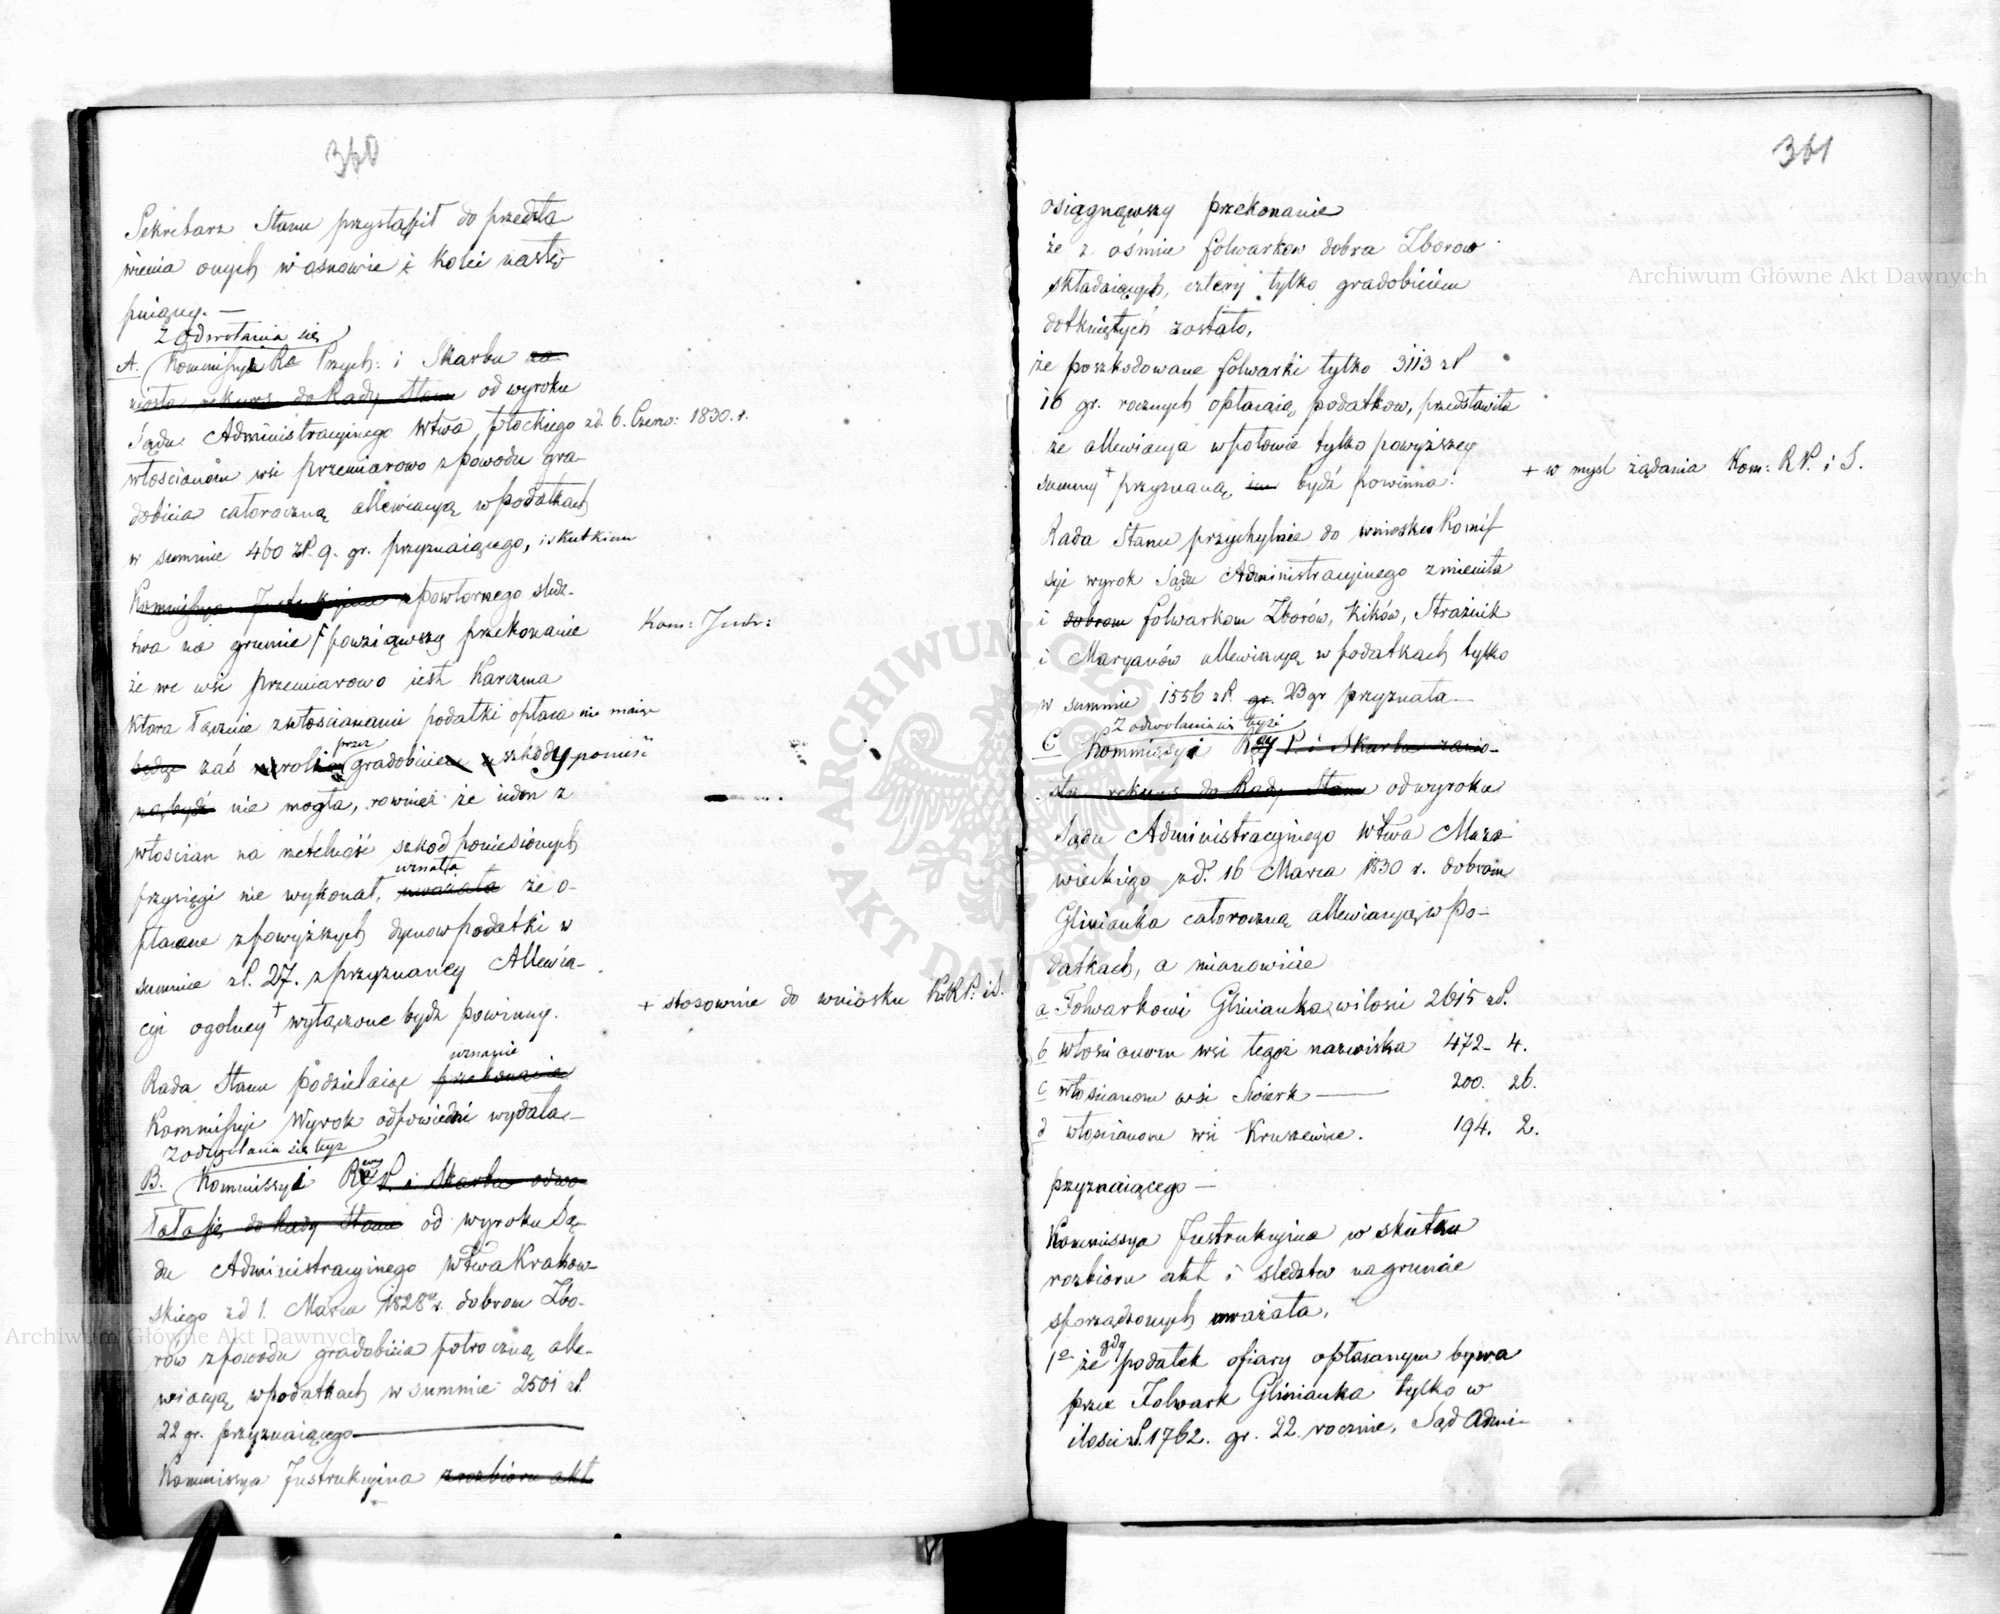 360
Sekretarz Stanu przystąpił do przedsta-
wienia onych w osnowie i kolei nastę-
pniącey. —
Z odwołania się
A. Kommissyi Rz. Przych: i Skarbu za-
niosła rekurs do Rady Stanu od wyroku
Sądu Administracyjnego Wtwa płockiego z d. 6. Czerw: 1830. r.
włoscianom wsi przemiarowo z powodu gra-
dobicia całoroczną allewiacyą w podatkach
w summie 460 zł. 9. gr. przyznaiącego, i skutkiem
Kommissya Instrukcyina z powtornego sledz-
twa na gruncie powziąwszy przekonanie
Kom: Instr:
że we wsi przemiarowo iest Karczma
ktora łącznie z włoscianami podatki opłaca nie maiąc
będąc zaś roli przez gradobicie szkody ponieść
nie mogła, rownież że ieden z
włoscian na rzetelność szkod poniesionych
uznała
przysięgi nie wykonał, uważała że o-
płacane z powyższych dymow podatki w
summie zł. 27. z przyznaney Allewia-
cyi ogolney + wyłączone bydz powinny.
+ stosownie do wniosku K.R.P. i S.
uznanie
Rada Stanu podzielaiąc przekonanie
Kommissyi Wyrok odpowiedni wydała —
Z odwołania się teyż
B. Kommissyi Rz P. i Skarbu odwo-
łała się do Rady Stanu od wyroku Są-
du Administracyjnego Wtwa Krakow-
skiego z d 1. Marca 1828 r. dobrom Zbo-
rów z powodu gradobicia połroczną alle-
wiacyą w podatkach w summie 2501 zł.
22 gr. przyznaiącego —
Kommissya Instrukcyina z rozbioru akt
361
osiągnąwszy przekonanie
że z ośmiu folwarkow dobra Zborow
składaiących, cztery tylko gradobiciem
dotkniętych zostało,
że poszkodowane folwarki tylko 3113 zł
16 gr. rocznych opłacaią podatkow, przedstawiła
że allewiacya w połowie tylko powyższey
summy + przyznaną bydź powinna.
+ w mysl żądania Kom: R P. i S.
Rada Stanu przychylnie do wniosku Komis-
syi wyrok Sądu Administracyinego zmieniła
i dobrom folwarkom Zborów, Kików, Strażnik
i Maryanów allewiacyą w podatkach tylko
w summie 1556 zł. gr. 23 gr przyznała —
Z odwołania się teyże
C Kommissyi Rz P. i Skarbu zanio-
sła rekurs do Rady Stanu od wyroku
Sądu Administracyinego Wtwa Mazo-
wieckiego z d. 16 Marca 1830 r. dobrom
Glinianka całoroczną allewiacyą w po-
datkach, a mianowicie
a Folwarkowi Glinianka w ilosci 2615 zł.
b włoscianom wsi tegoż nazwiska 472 - 4.
c włoscianom wsi Swierk — 200. 26.
d włoscianom wsi Kruszewiec. 194. 2.
przyznaiącego —
Kommissya Instrukcyina w skutku
rozbioru akt i sledztw na gruncie
sporządzonych uważała,
1o że gdy podatek ofiary opłacanym bywa
przez Folwark Glinianka tylko w
ilosci zł. 1762. gr. 22. rocznie, Sąd Admi-
Archiwum Główne Akt Dawnych
Archiwum Główne Akt Dawnych
ARCHIWUM GŁÓWNE AKT DAWNYCH